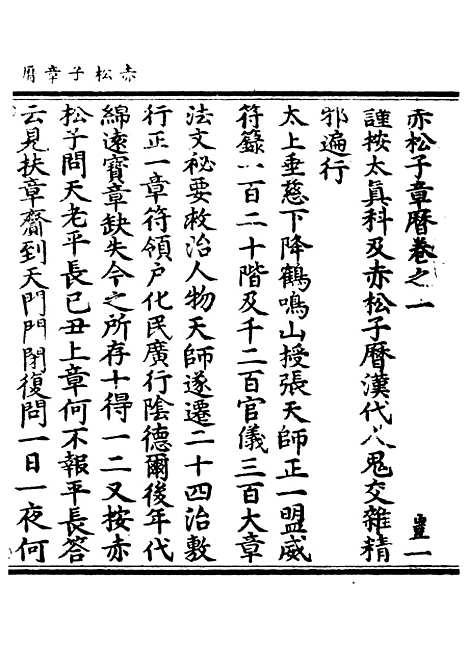 赤松子章曆
赤松子章曆卷之一
豊一
謹按太真科及赤松子曆漢代人鬼交雜精
邪遍行
太上垂慈下降鶴鳴山授張天師正一盟威
符籙一百二十階及千二百官儀三百大章
法文祕要救治人物天師遂遷二十四治敷
行正一章符領户化民廣行陰德爾後年代
綿遠寳章缺失今之所存十得一二又按赤
松子問天老平長已丑上章何不報平長答
云見扶章齎到天門門閉復問一日一夜何